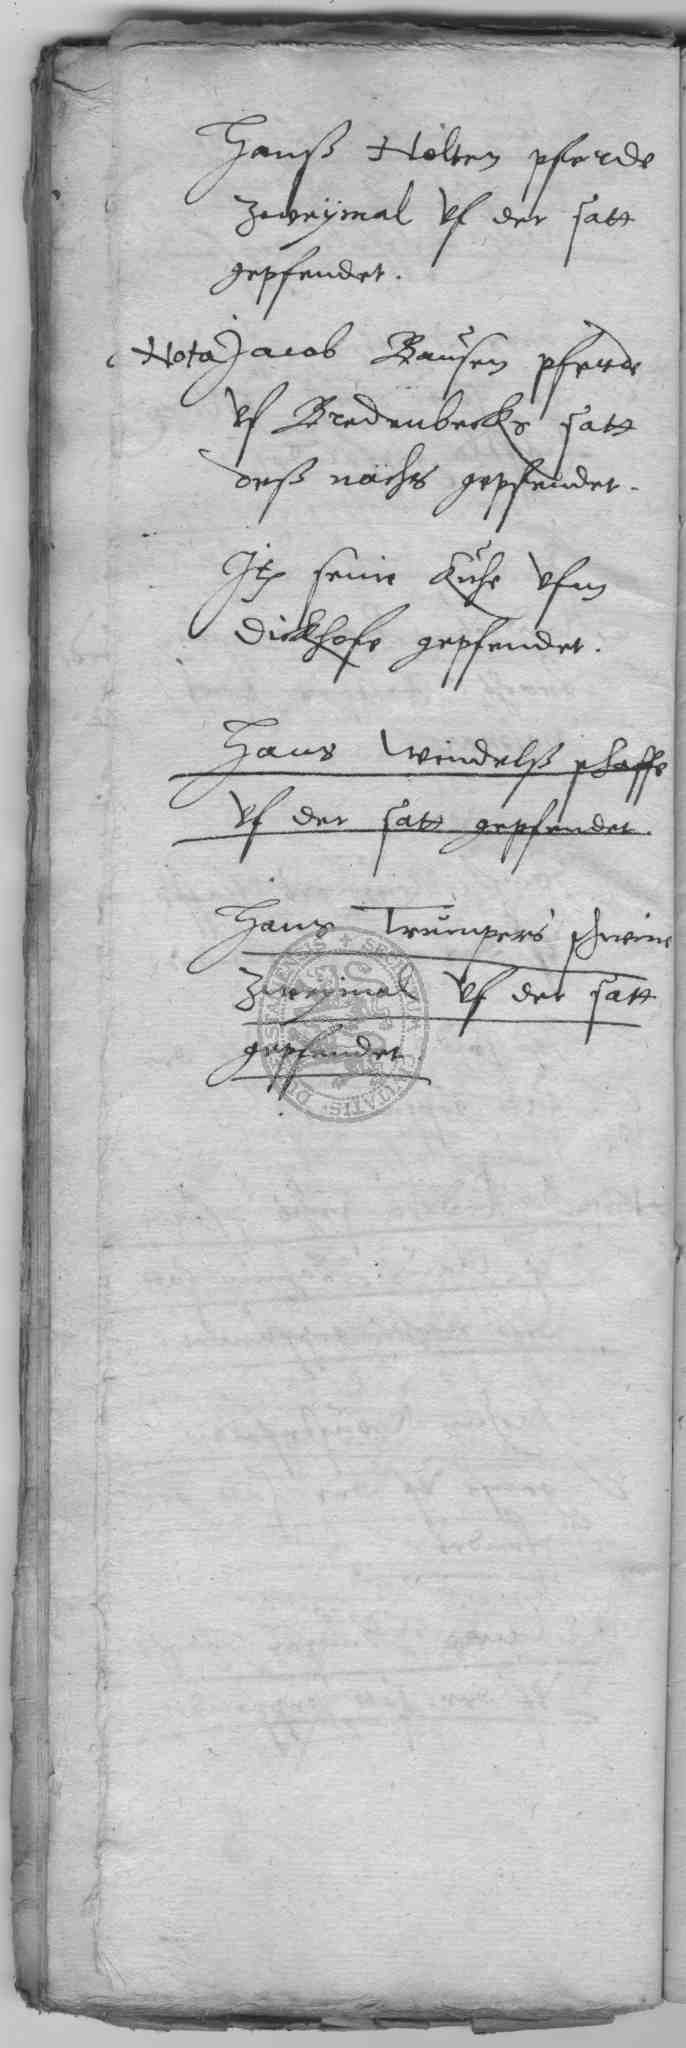 Hanß Nölten pferde
zweÿmal vf der satt
gepfendet.
Nota Jacob Bausen pferde
vf Bredenbecks satt
deß nachs gepfendet.
Itz seine Kühe vfm
Dickhofe gepfendet.
Hans Windelß schaffe
vf der satt gepfendet.
Hans Trümpers schweine
zweÿmal vf der satt
gepfendet.